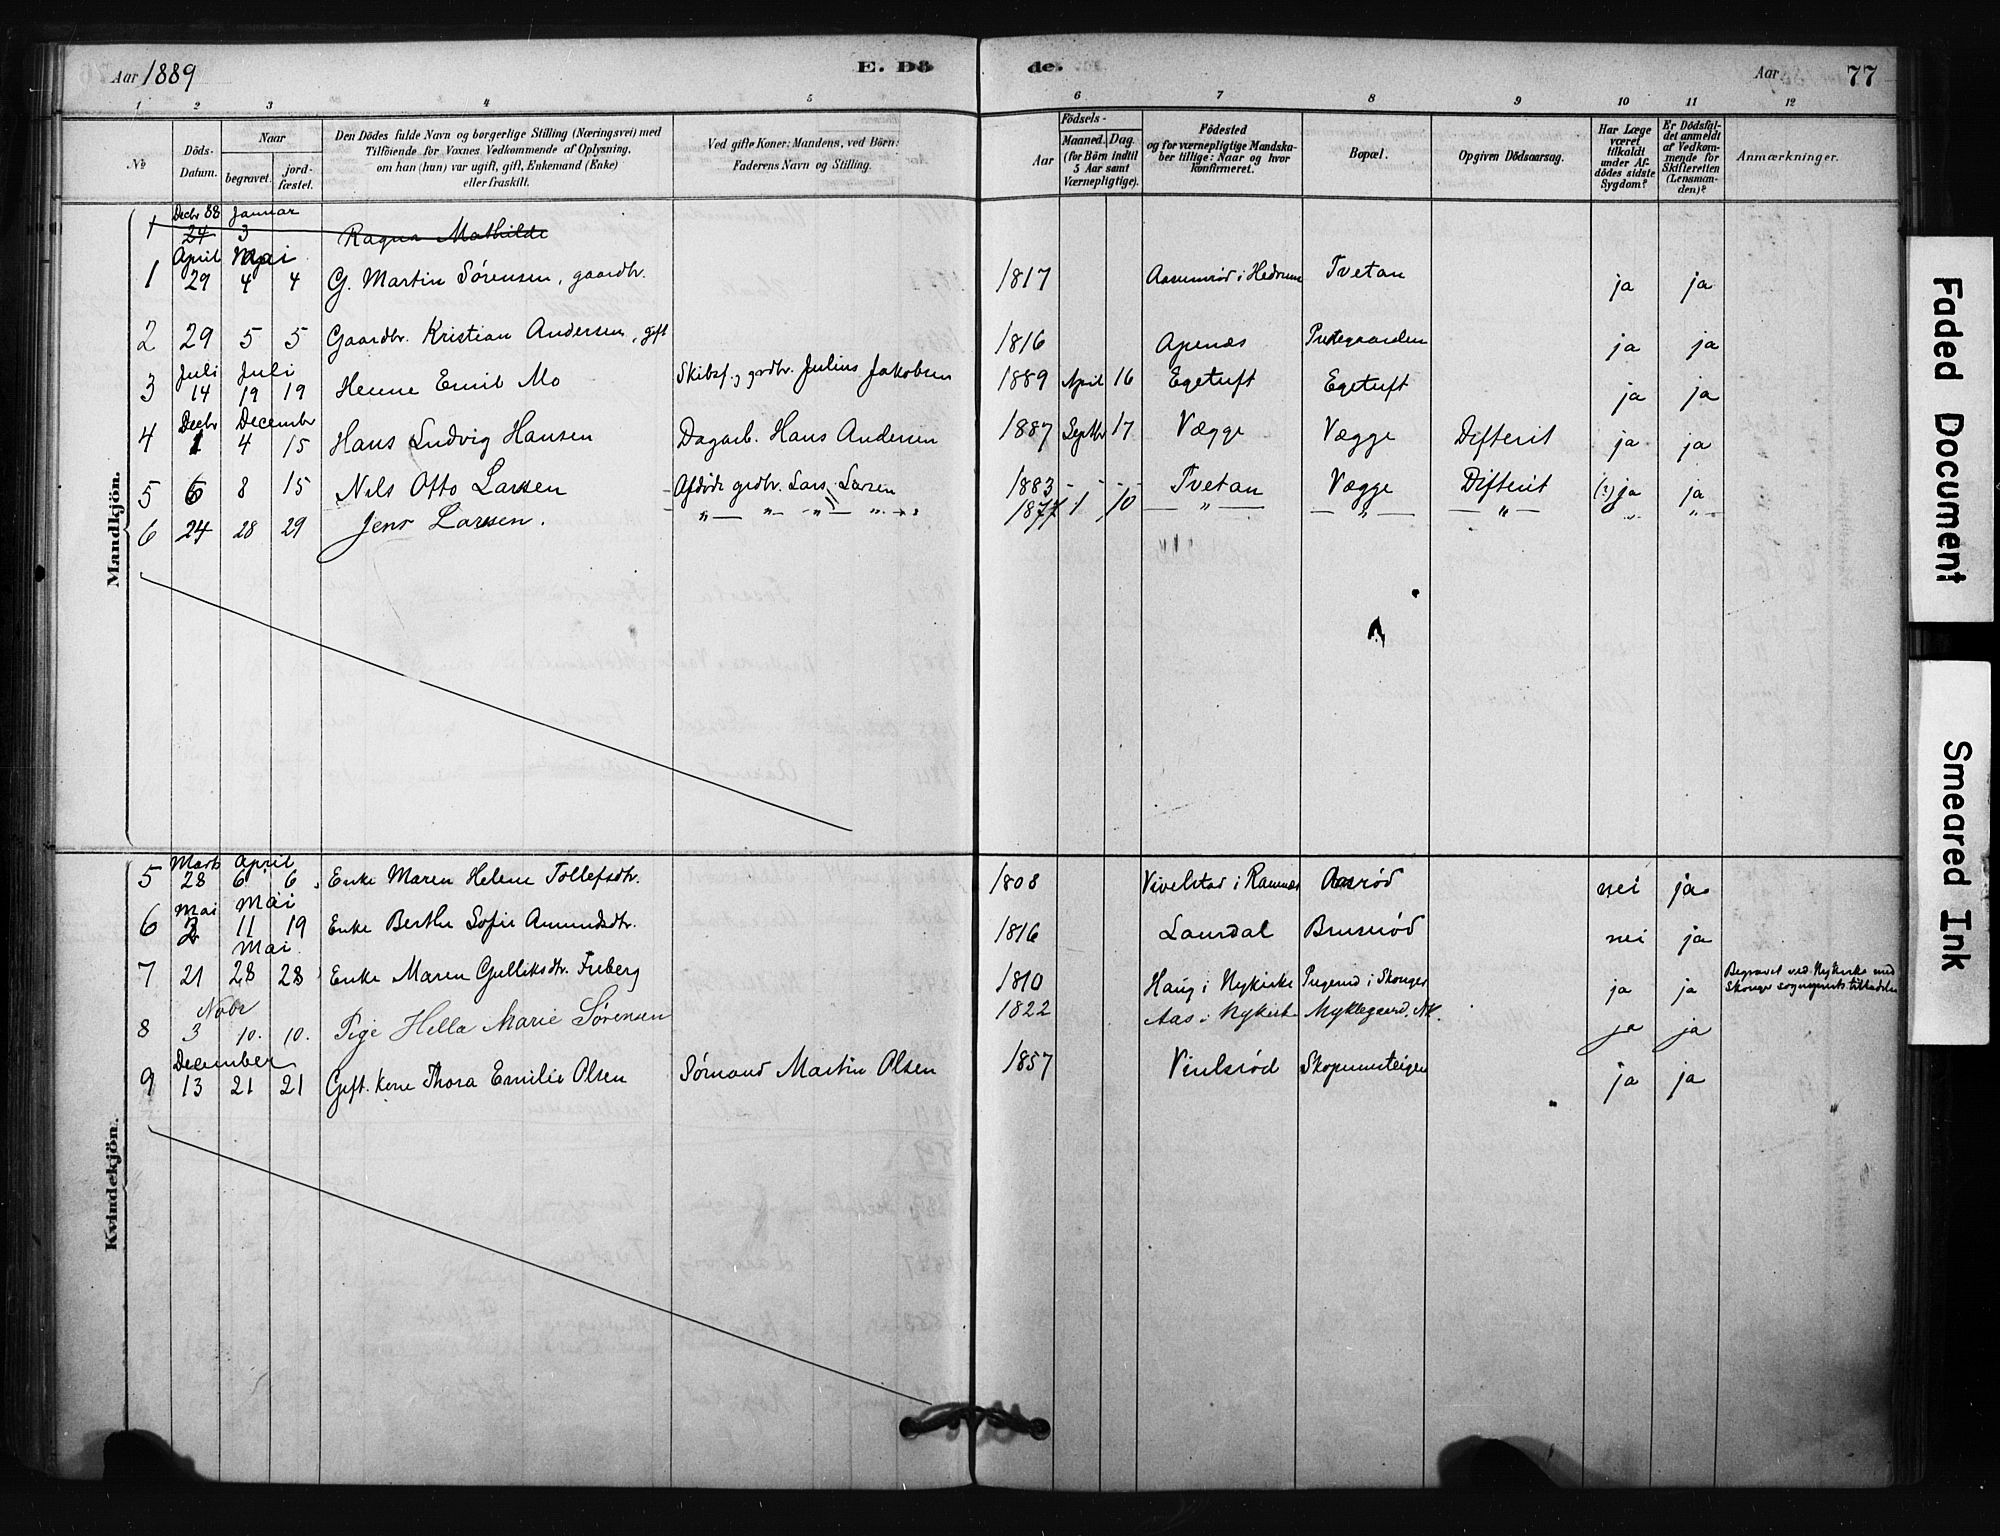 Aar 1889 E. Dö de. Aar 77
1 2 3 4 5 6 7 8 9 10 11 12
№ Döds-Datum. Naar begravet. jordfæstet. Den Dödes fulde Navn og borgerlige Stilling (Næringsvei) med Tilföiende for Voxnes Vedkommende af Oplysning, om han (hun) var ugift, gift, Enkemand (Enke) eller fraskilt. Ved gifte Koner: Mandens, ved Börn: Faderens Navn og Stilling. Aar Födsels- Maaned. Dag. (for Börn indtil 5 Aar samt Værnepligtige). Födested og for værnepligtige Mandskaber tillige: Naar og hvor konfirmeret. Bopæl. Opgiven Dödsaarsag. Har Læge været tilkaldt under Afdödes sidste Sygdom? Er Dödsfaldet anmeldt af Vedkommende for Skifteretten (Lensmanden)? Anmærkninger.
Mandkjön.
Decbr 88 Januar
1 24 3 Ragna Mathilde
April Mai
1 29 4 4 G. Martin Sørensen, gaardbr. 1817 i Hedrum Tvetan ja ja
2 29 5 5 Gaardbr. Kristian Andersen, gift 1816 Apenæs Prestegaarden ja ja
Juli Juli
3 14 19 19 Emil Mo Skibsf. og grdbr. Julius Jakobsen 1889 April 16 Egetuft Egetuft ja ja
Decbr December
4 1 4 15 Hans Ludvig Hansen Dagarb. Hans Andersen 1887 Septbr 17 Vægge Vægge Difterit ja ja
5 6 8 15 Nils Otto Larsen Afdøde grdbr. Lars Larsen 1883 - - Tvetan Vægge Difterit (?) ja ja
6 24 28 29 Jens Larsen. " " " " " 1877 1 10 " " " " "
Kvindekjön.
Marts April
5 28 6 6 Enke Maren Helene Tollefsdtr. 1808 Vivelstad i Ramnæs Aasrød nei ja
Mai Mai
6 2 11 19 Enke Berthe Sofie Amundsdtr. 1816 Laurdal Bruserød nei ja
Mai
7 21 28 28 Enke Maren Gulliksdtr. Freberg 1810 Haug i Nykirke i Skoger ja ja Begravet ved Nykirke med Skoger sogneprests tilladelse
Novbr
8 3 10. 10. Pige Hella Marie Sørensen 1822 Aas i Nykirke Myklegaard. NK. ja ja
December
9 13 21 21 Gift. kone Thora Emilie Olsen Sømand Martin Olsen 1857 Vinlsrød Skopumsteigen ja ja
Faded Document
Smeared Ink